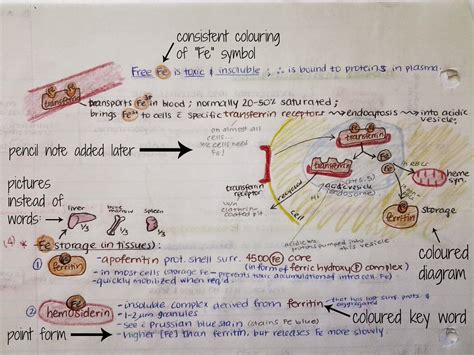 consistent colouring
of "Fe" symbol
Free Fe is toxic & insoluble; ∴ is bound to proteins in plasma.
transferrin
transports Fe³⁺ in blood; normally 20-50% saturated;
brings Fe³⁺ to cells c̄ specific transferrin receptor → endocytosis → into acidic
vesicle.
on almost all
cells...
(all cells need
Fe!)
pencil note added later
transferrin
Fe
Fe
in RBCs
heme
syn.
pictures
instead of
words:
liver
1/3
bone
marrow
1/3
spleen
1/3
transferrin
receptor
recycled
cell
acidic vesicle
(endosome)
clathrin
coated pit
Fe
ferritin
storage
(4) * Fe storage (in tissues):
coloured
diagram
1 ferritin
- apoferritin prot. shell surr. 4500 Fe core
- in most cells (in form of ferric hydroxy complex)
- quickly mobilized when req'd
2 hemosiderin
- insoluble complex derived from ferritin
- 1-2 µm granules
- see c̄ Prussian blue stain (stains Fe blue)
- higher [Fe] than ferritin, but releases Fe more slowly.
coloured key word
point form